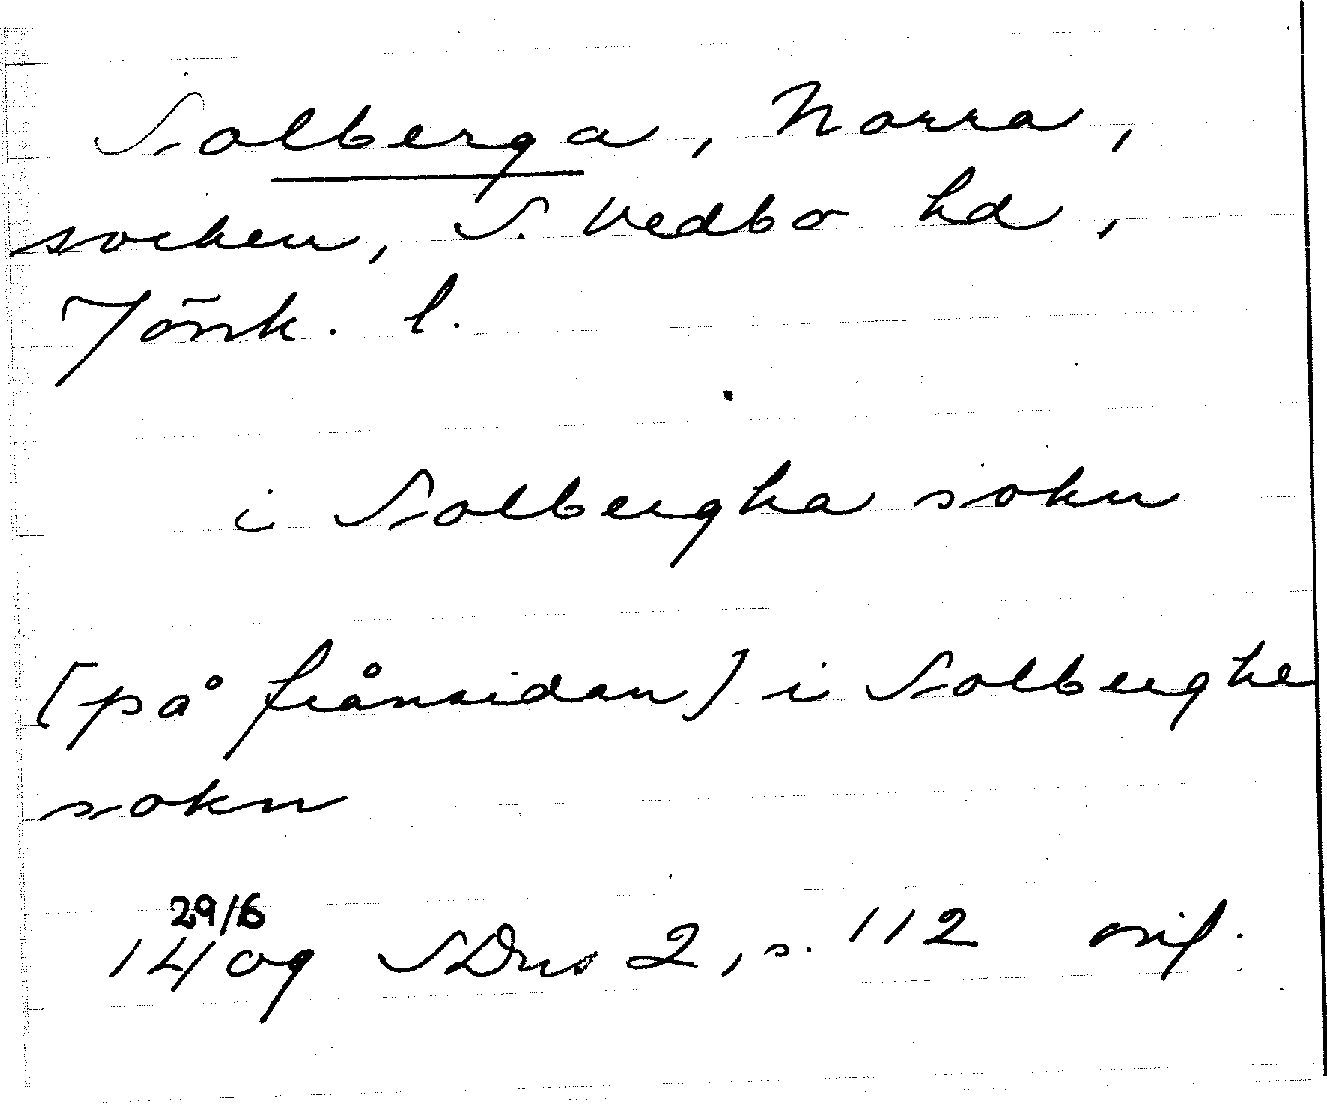 Solberga, Norra,
socken, S. Vedbo hd,
Jönk. l.
i Solbergha sokn
[på frånsidan] i Solberghe
sokn
29/6
1409 SDns 2, s. 112 orig.